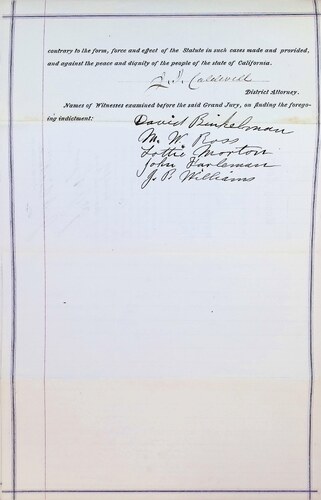 contrary to the form, force and effect of the Statute in such cases made and provided,
and against the peace and dignity of the people of the state of California.
Caldwell
District Attorney.
Names of Witnesses examined before the said Grand Jury, on finding the forego-
ing indictment:
David Binkelman
M. W. Ross
Lottie Morton
John
J. P. Williams